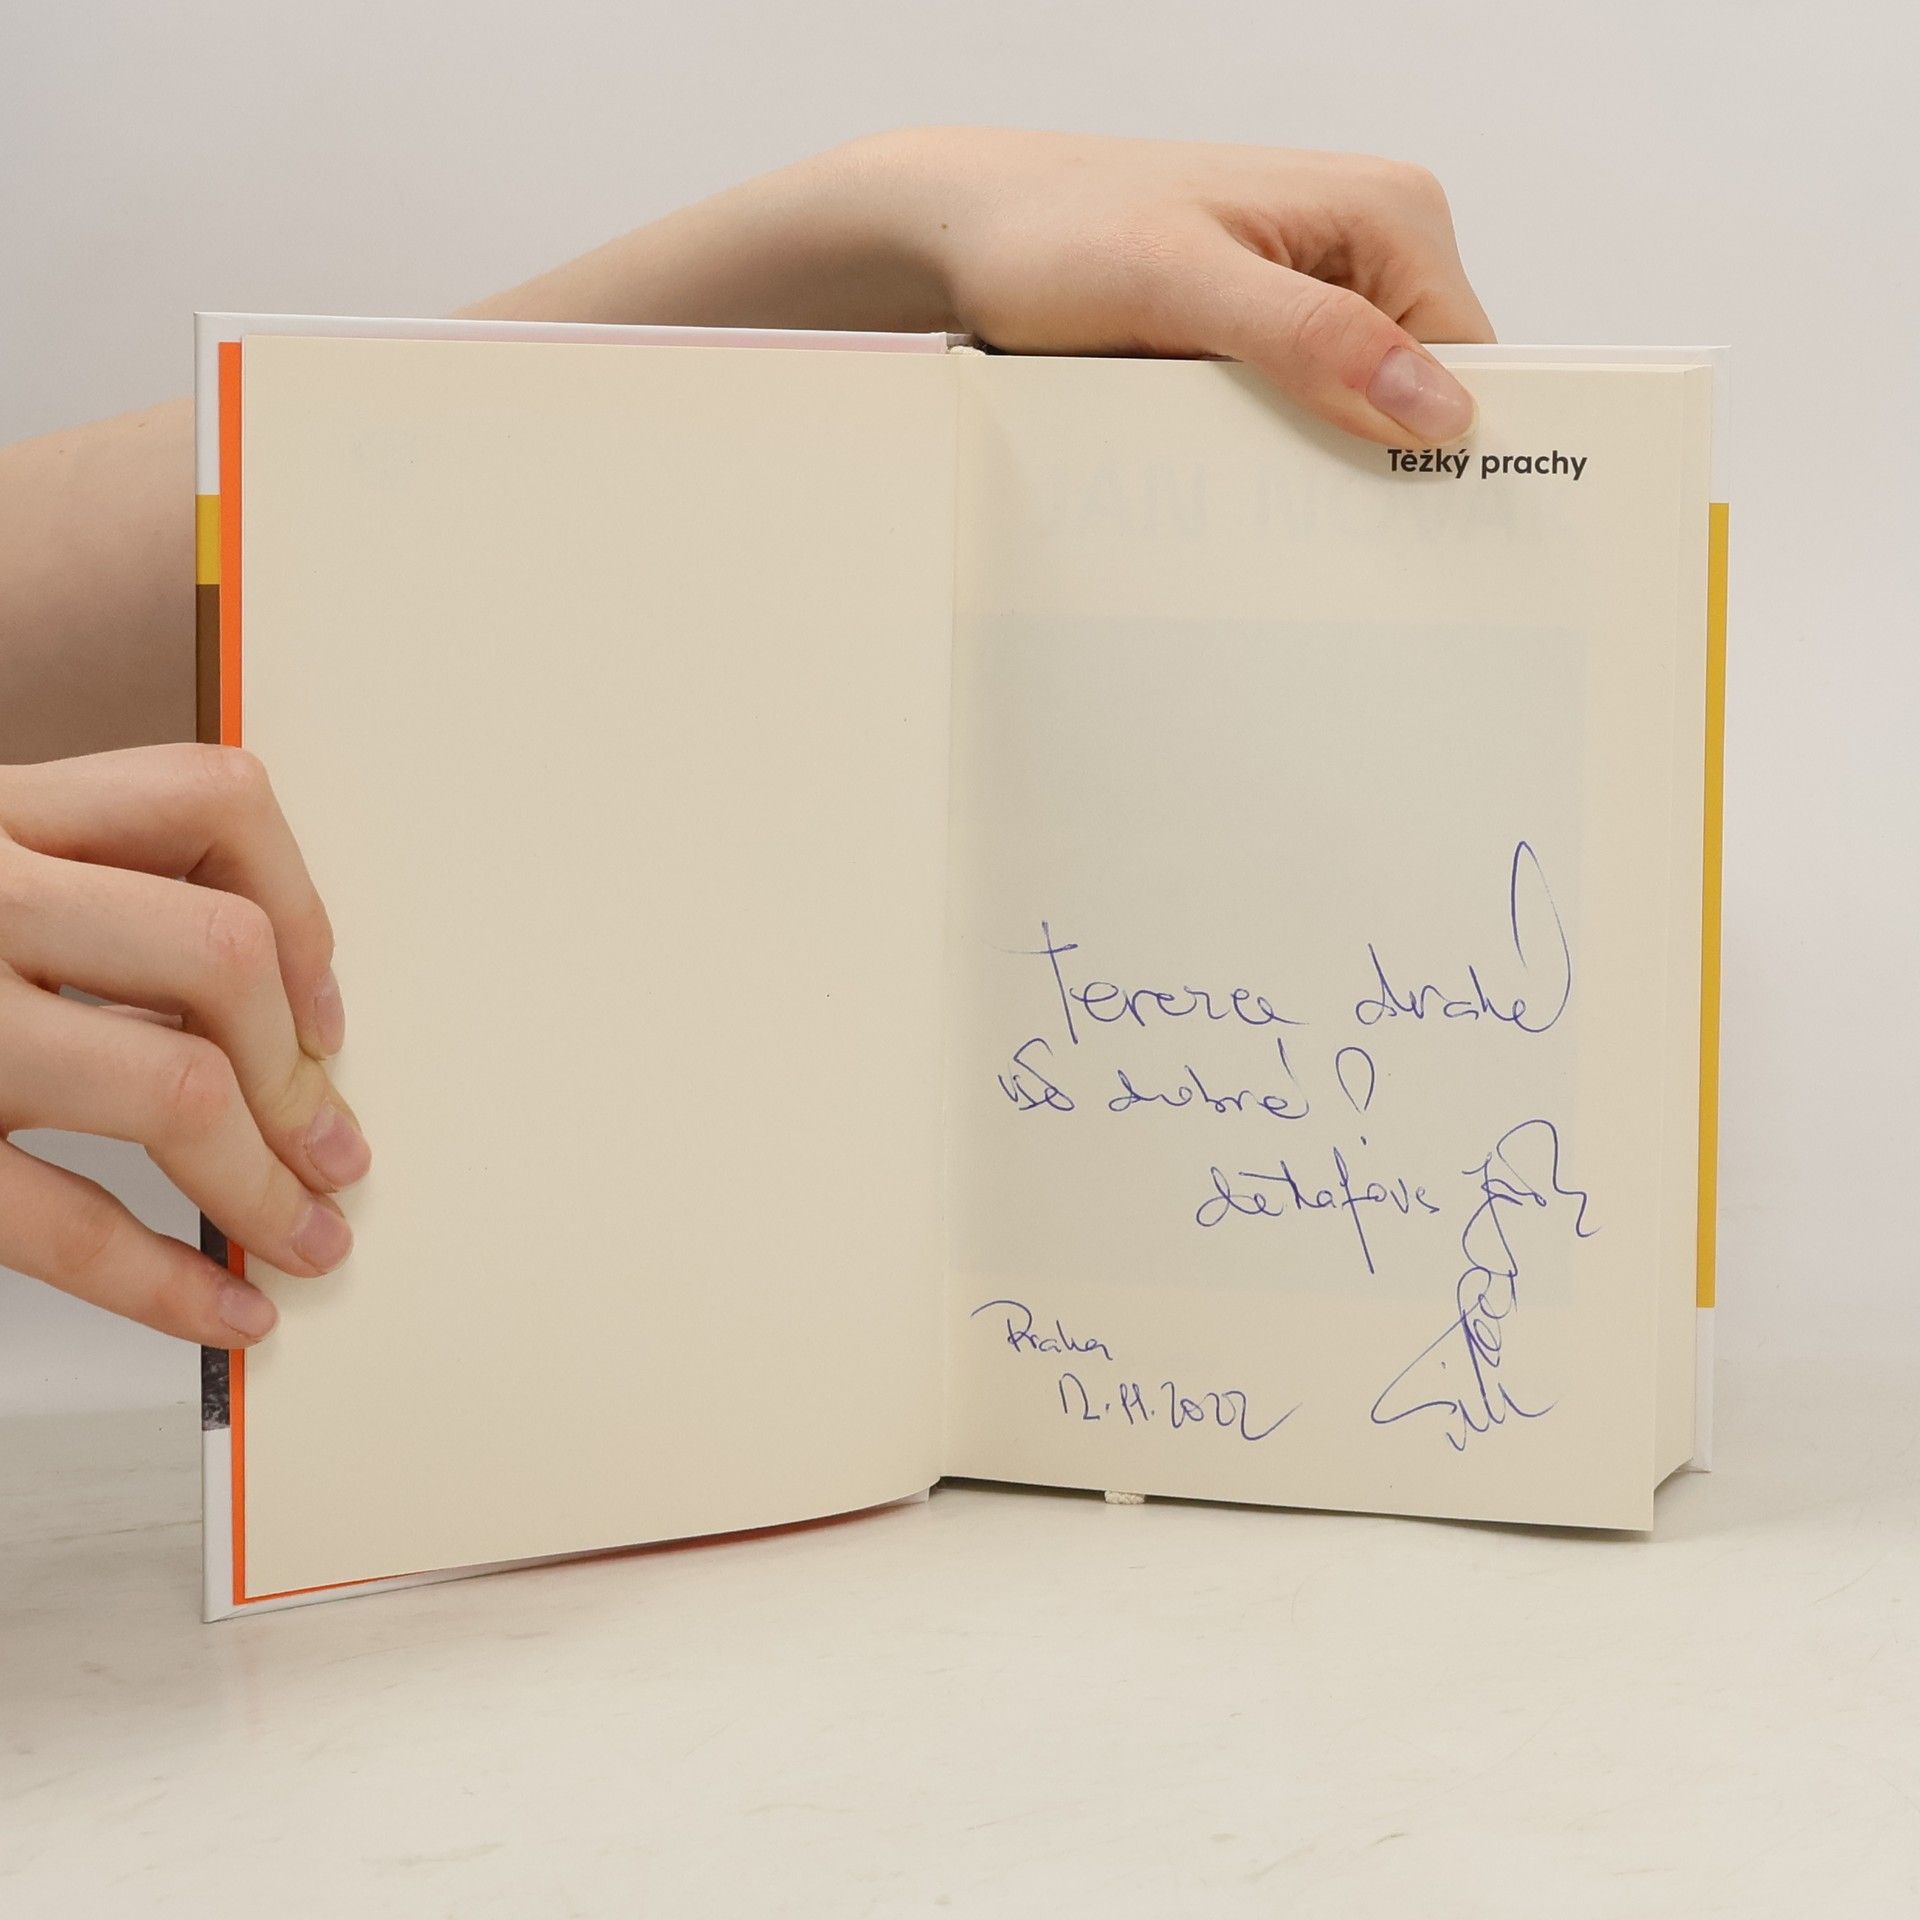 Těžký prachy
Tereze drahé
vše dobré!
Praha
12.11.2022